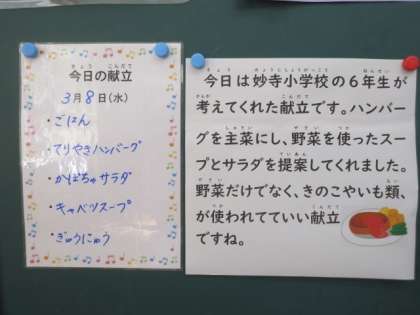 今日の献立
3月8日(水)
・ごはん
・てりやきハンバーグ
・かぼちゃサラダ
・キャベツスープ
・ぎゅうにゅう
今日は妙寺小学校の6年生が
考えてくれた献立です。ハンバー
グを主菜にし、野菜を使ったスー
プとサラダを提案してくれました。
野菜だけでなく、きのこやいも類、
が使われてていい献立
ですね。